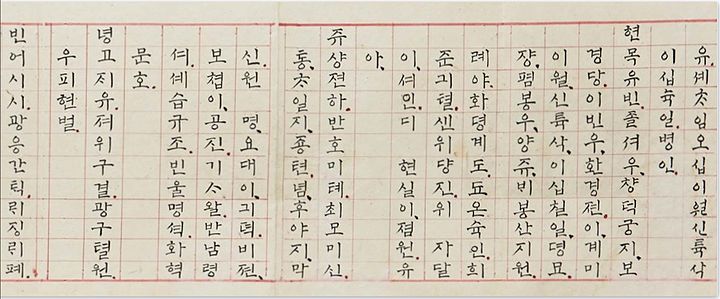 유셰ᄎᆞ임오십이월신륙삭
이십뉵일병인
현목유빈졸셔우챵덕궁지보
경당이빈우환경젼이계미
이월신륙삭이십칠일뎡묘
쟝폄봉우양쥬비봉산지원
례야화뎡계도됴온슉인희
준긔텰션위당진위 자달
이셔민디 현실이졈원유
아
쥬샹젼하반호미톄최모미신
통ᄎᆞ일지죵텬념후야지막
신원 명요대이긔덕비젼
보쳡이공진기ᄉᆞ왈반남령
셔셰습규조빈울명셔화혁
문호
녕고지유져위구결광구텰원
우피현벌
빈어시시광응간틱릐징릐폐